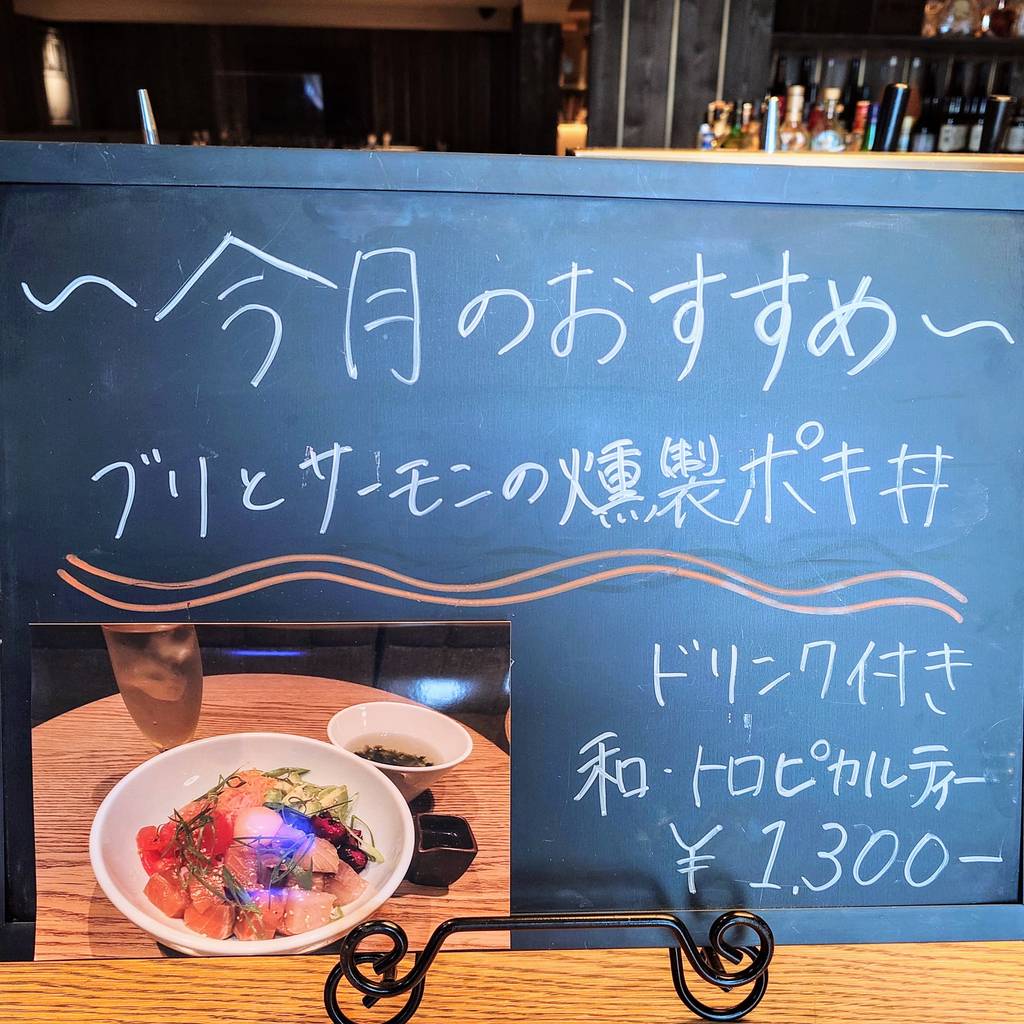 ～今月のおすすめ～
ブリとサーモンの燻製ポキ丼
ドリンク付き
和・トロピカルティー
¥1,300ー